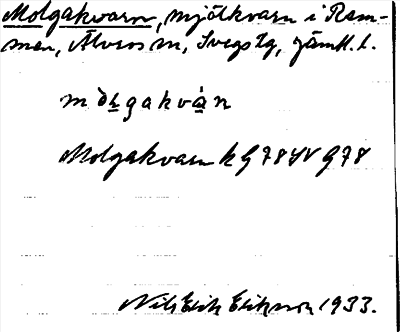 Molgakvarn, mjölkvarn i Rem-
men, Älvros sn, Svegs tg, Jämtl. l.
mòlgakvàn
Molgakvarn k G 78 SV G 78
Nils Erik Eriksson 1933.